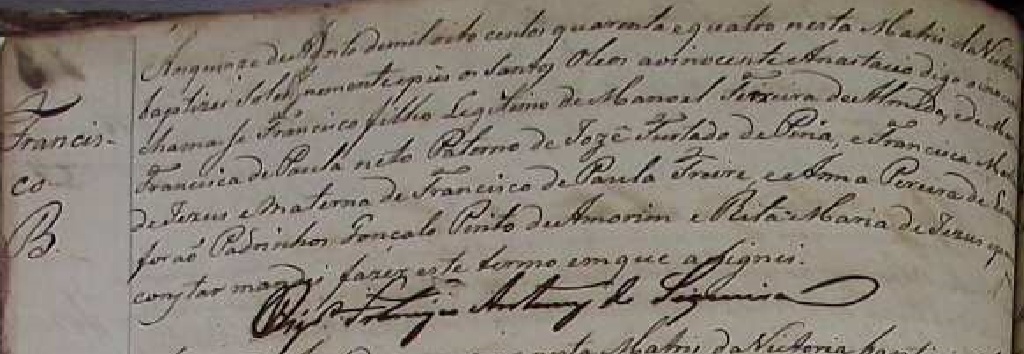 Francis-
co
B.
Aos quinze de Agosto de mil oito centos quarenta e quatro nesta Matris da Victoria
baptizei solemnemente e pus os Santos Oleos a innocente Anastacio digo o innocente
chama-se Francisco filho Legitimo de Manoel Ferreira de Almeida, e de Maria
Francisca de Paula neto Paterno de Jozé Furtado de Piria, e Francisca Maria
de Jezus e Materna de Francisco de Paula Freire e Anna Pereira de
foraõ Padrinhos Gonçalo Pinto de Amorim e Rita Maria de Jezus e para
constar mandei fazer este termo em que asignei.
Antonio de Siqueira
nesta Matris da Victoria baptizei